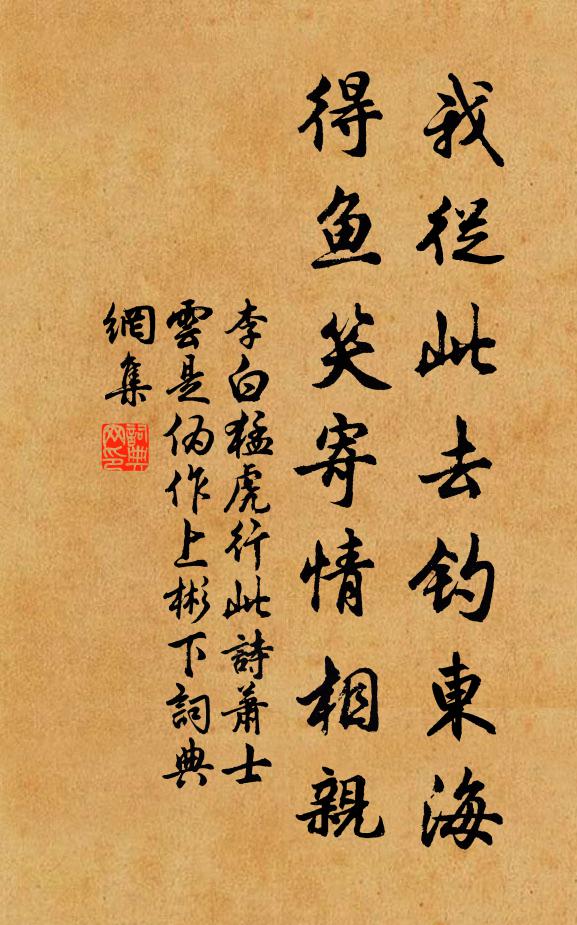 我從此去釣東海
得魚笑寄情相親
李白猛虎行此詩蕭士
雲是偽作上彬下詞典
網集
詞典
网印